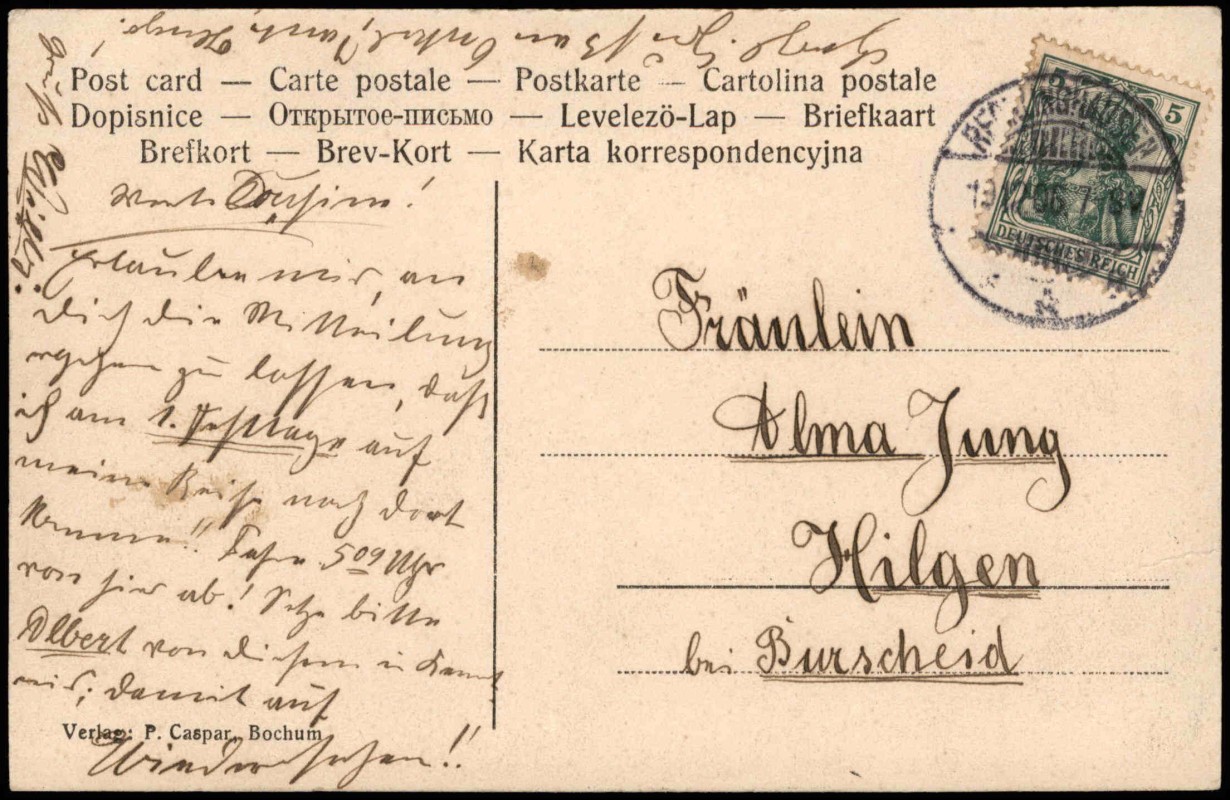 Post card — Carte postale — Postkarte — Cartolina postale
Dopisnice — Открытое-письмо — Levelezö-Lap — Briefkaart
Brefkort — Brev-Kort — Karta korrespondencyjna
5
DEUTSCHES REICH
Werte Cousine!
Erlaube mir, an
Dich die Mitteilung
ergehen zu lassen, daß
ich am 1. Festtage auf
meine Reise nach dort
komme!! Fahre 5 09 Uhr
von hier ab! Setze bitte
Albert von diesem in Kennt
nis; damit auf
Wiedersehen!!
Verlag: P. Caspar, Bochum
Fräulein
Alma Jung
Hilgen
bei Burscheid